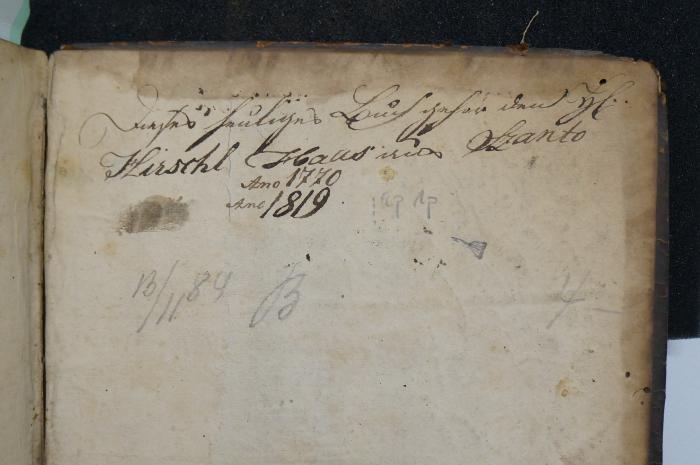 Dieses heuliges Buch gehör den H:
Hirschl Haas aus Szanto
Ano 1770
Ano 1819
13/11 84 B 4